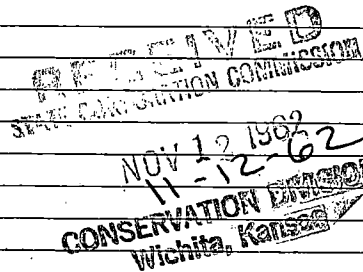 RECEIVED
STATE CORPORATION COMMISSION
NOV 12 1962
11-12-62
CONSERVATION DIVISION
Wichita, Kansas